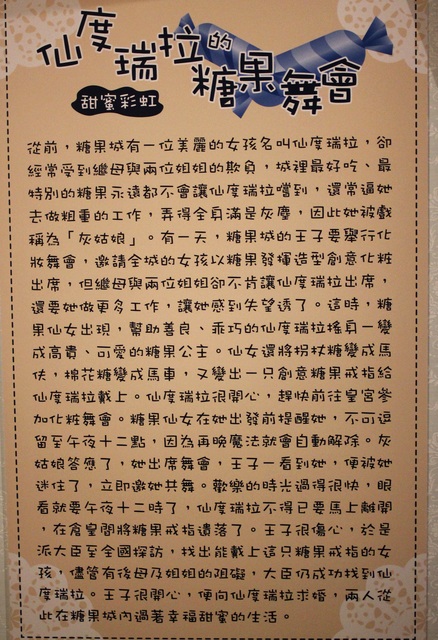 仙度瑞拉的
糖果舞會
甜蜜彩虹
從前，糖果城有一位美麗的女孩名叫仙度瑞拉，卻
經常受到繼母與兩位姐姐的欺負，城裡最好吃、最
特別的糖果永遠都不會讓仙度瑞拉嚐到，還常逼她
去做粗重的工作，弄得全身滿是灰塵，因此她被戲
稱為「灰姑娘」。有一天，糖果城的王子要舉行化
妝舞會，邀請全城的女孩以糖果發揮造型創意化粧
出席，但繼母與兩位姐姐卻不肯讓仙度瑞拉出席，
還要她做更多工作，讓她感到失望透了。這時，糖
果仙女出現，幫助善良、乖巧的仙度瑞拉搖身一變
成高貴、可愛的糖果公主。仙女還將拐杖糖變成馬
伕，棉花糖變成馬車，又變出一只創意糖果戒指給
仙度瑞拉戴上。仙度瑞拉很開心，趕快前往皇宮參
加化粧舞會。糖果仙女在她出發前提醒她，不可逗
留至午夜十二點，因為再晚魔法就會自動解除。灰
姑娘答應了，她出席舞會，王子一看到她，便被她
迷住了，立即邀她共舞。歡樂的時光過得很快，眼
看就要午夜十二時了，仙度瑞拉不得已要馬上離開
，在倉皇間將糖果戒指遺落了。王子很傷心，於是
派大臣至全國探訪，找出能戴上這只糖果戒指的女
孩，儘管有後母及姐姐的阻礙，大臣仍成功找到仙
度瑞拉。王子很開心，便向仙度瑞拉求婚，兩人從
此在糖果城內過著幸福甜蜜的生活。